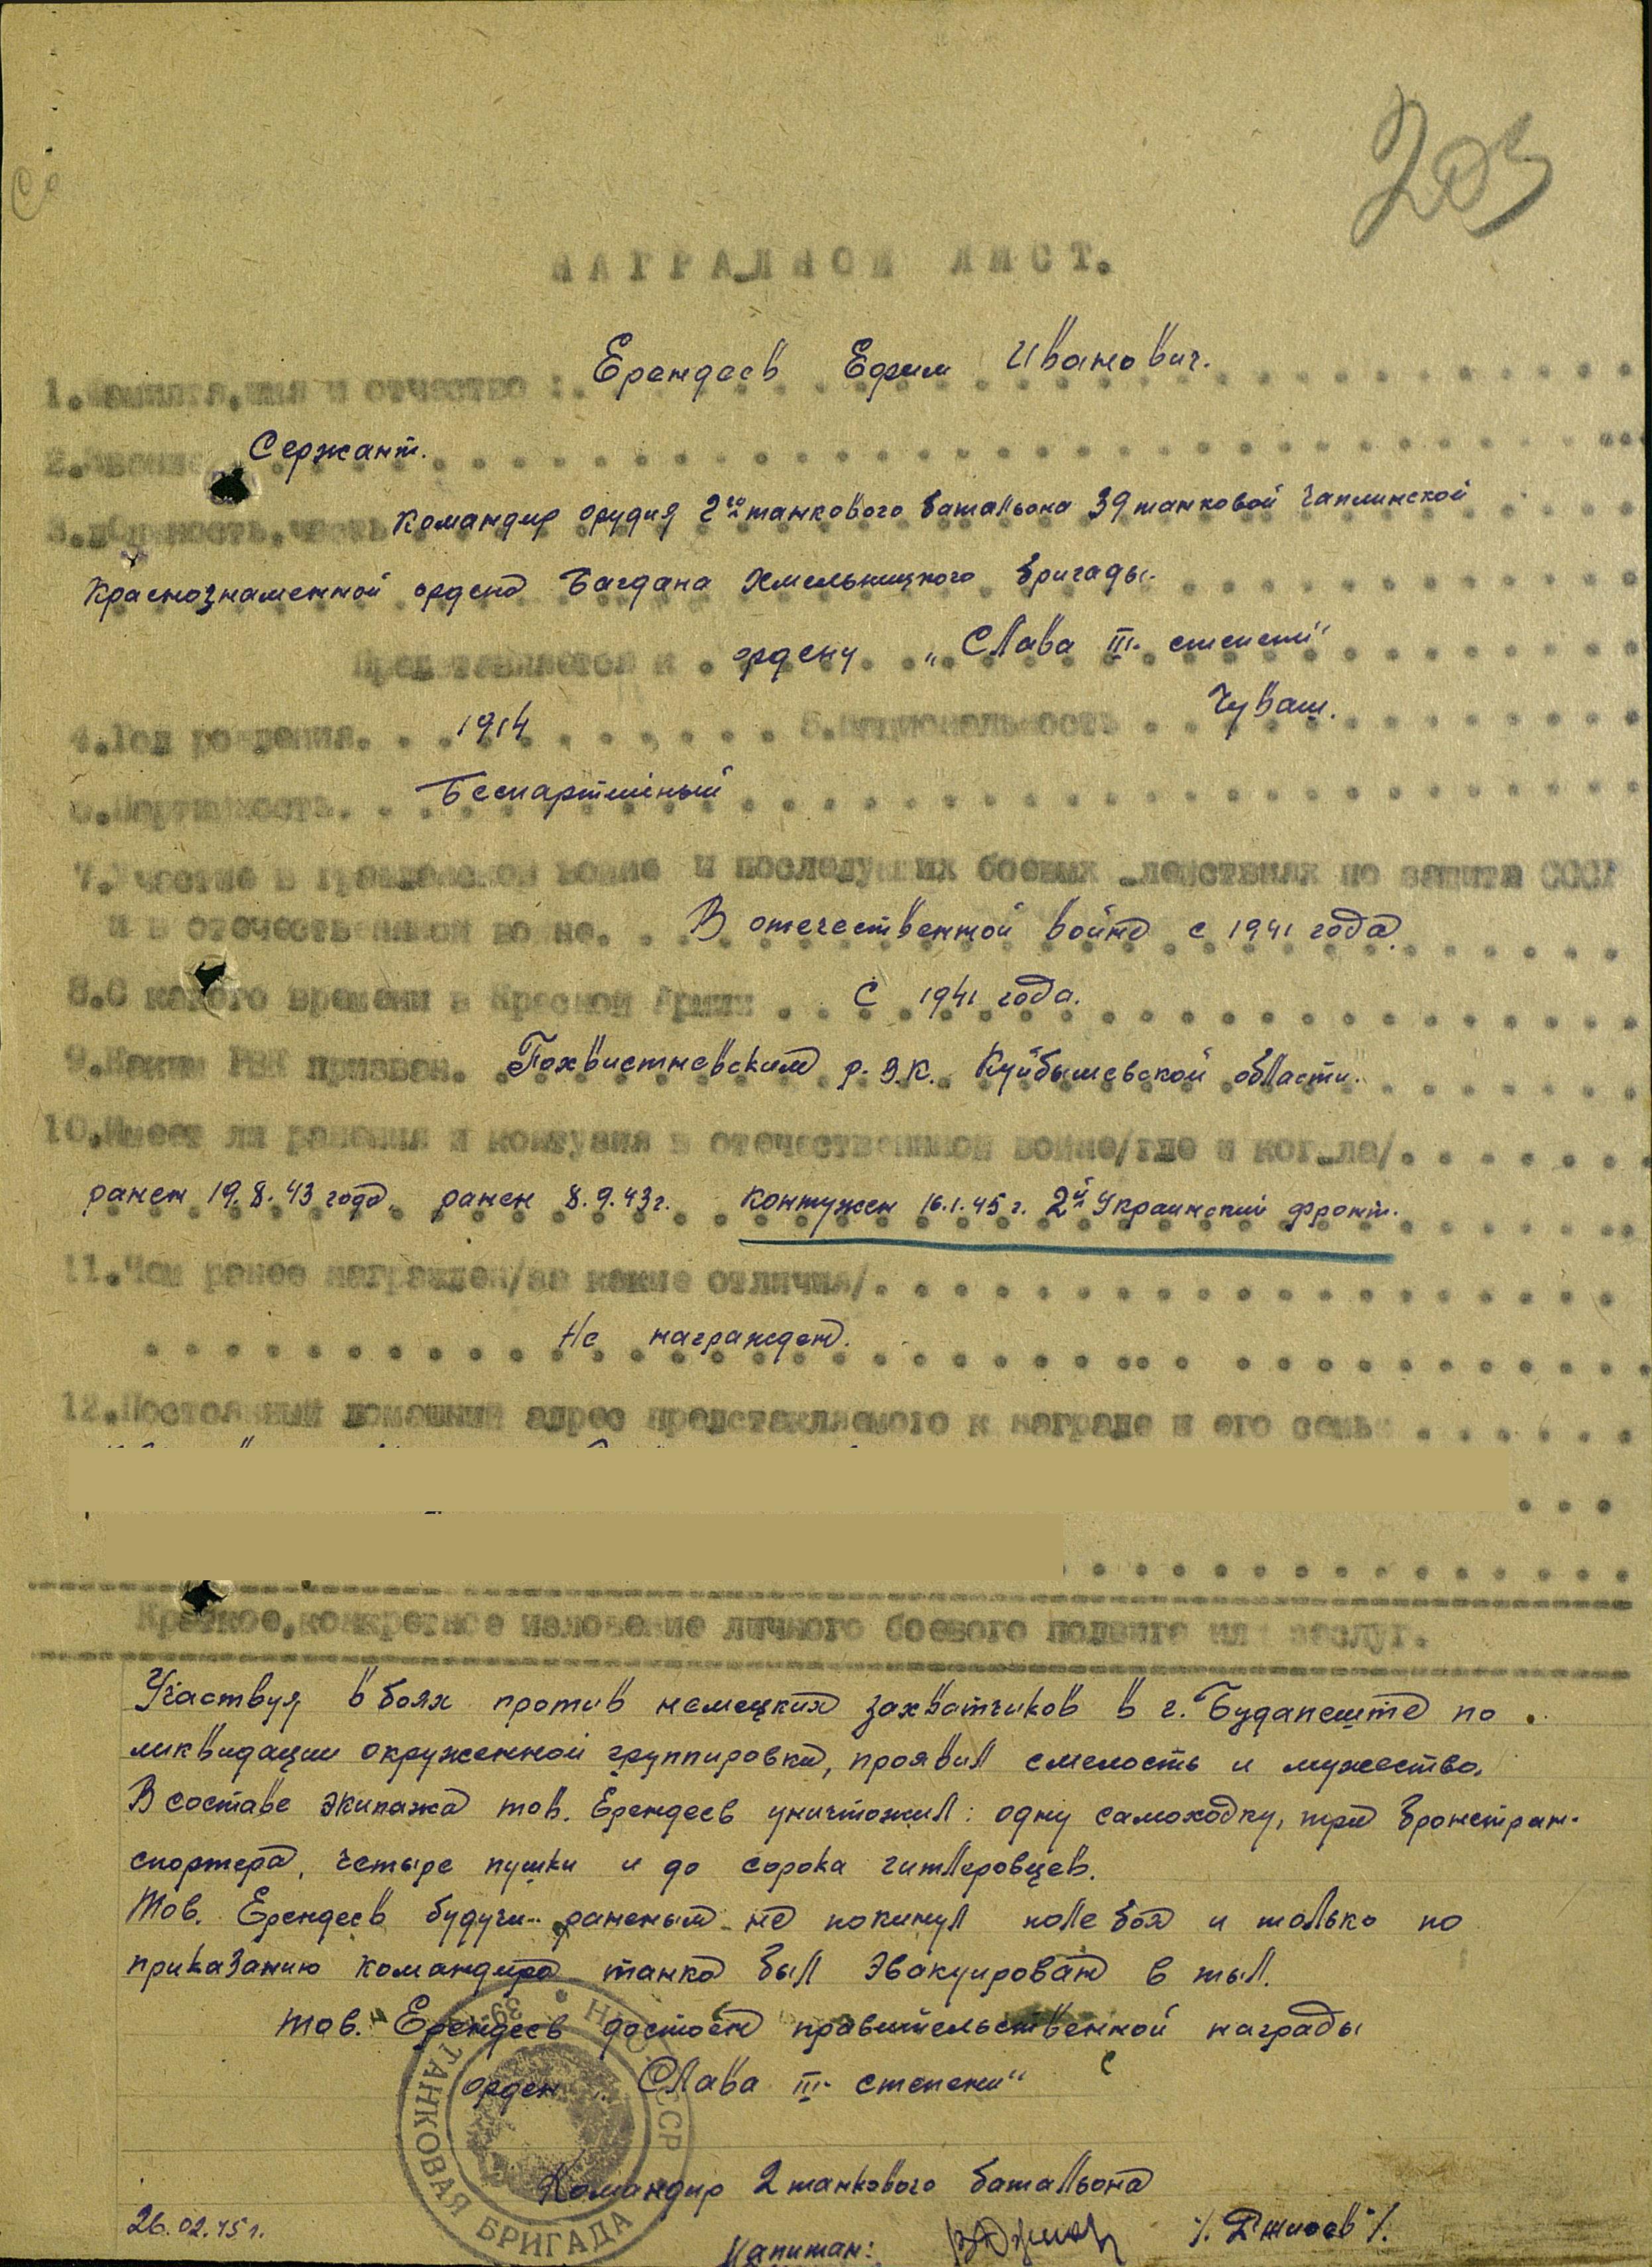 203
НАГРАДНОЙ ЛИСТ.
1.Фамилия,имя и отчество : Ерендеев Ефим Иванович.
2.Звание Сержант.
3.Должность,часть Командир орудия 2го танкового батальона 39 танковой Чаплинской
Краснознаменной ордена Багдана Хмельницкого бригады.
Представляется к ордену „Слава III степени"
4.Год рождения. 1914 5.Национальность Чуваш.
6.Партийность. Беспартийный
7.Участие в гражданской войне и последующих боевых действиях по защите СССР
и в отечественной войне. В отечественной войне с 1941 года.
8.С какого времени в Красной Армии С 1941 года.
9.Каким РВК призван. Похвистневским р.в.к. Куйбышевской области.
10.Имеет ли ранения и контузия в отечественной войне/где и когда/.
ранен 19.8.43 года, ранен 8.9.43г. контужен 16.1.45г. 2й Украинский фронт.
11.Чем ранее награжден/за какие отличия/.
Не награжден.
12.Постоянный домашний адрес представляемого к награде и его семьи
Краткое,конкретное изложение личного боевого подвига или заслуг.
Участвуя в боях против немецких захватчиков в г. Будапеште по
ликвидации окруженной группировки, проявил смелость и мужество.
В составе экипажа тов. Ерендеев уничтожил: одну самоходку, три бронетран-
спортера, четыре пушки и до сорока гитлеровцев.
Тов. Ерендеев будучи раненым не покинул поле боя и только по
приказанию командира танка был эвакуирован в тыл.
тов. Ерендеев достоен правительственной награды
орден „Слава III степени"
Командир 2 танкового батальона
26.02.45г. Капитан: /Джиоев/.
39 ТАНКОВАЯ БРИГАДА СССР